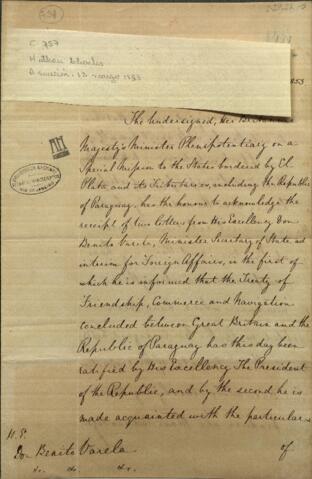 C 757
Asunción, 13 março 1853
1853
The Undersigned, Her Britannic
Majesty's Minister Plenipotentiary on a
Special Mission to the States bordered by El
Plata and its Tributaries, including the Republic
of Paraguay, has the honour to acknowledge the
receipt of two letters from His Excellency Don
Benito Varela, Minister Secretary of State ad
interim for Foreign Affairs, in the first of
which he is informed that the Treaty of
Friendship, Commerce and Navigation
concluded between Great Britain and the
Republic of Paraguay has this day been
ratified by His Excellency The President
of the Republic, and by the second he is
made acquainted with the particulars
H. E.
Don Benito Varela
of
&c. &c. &c.